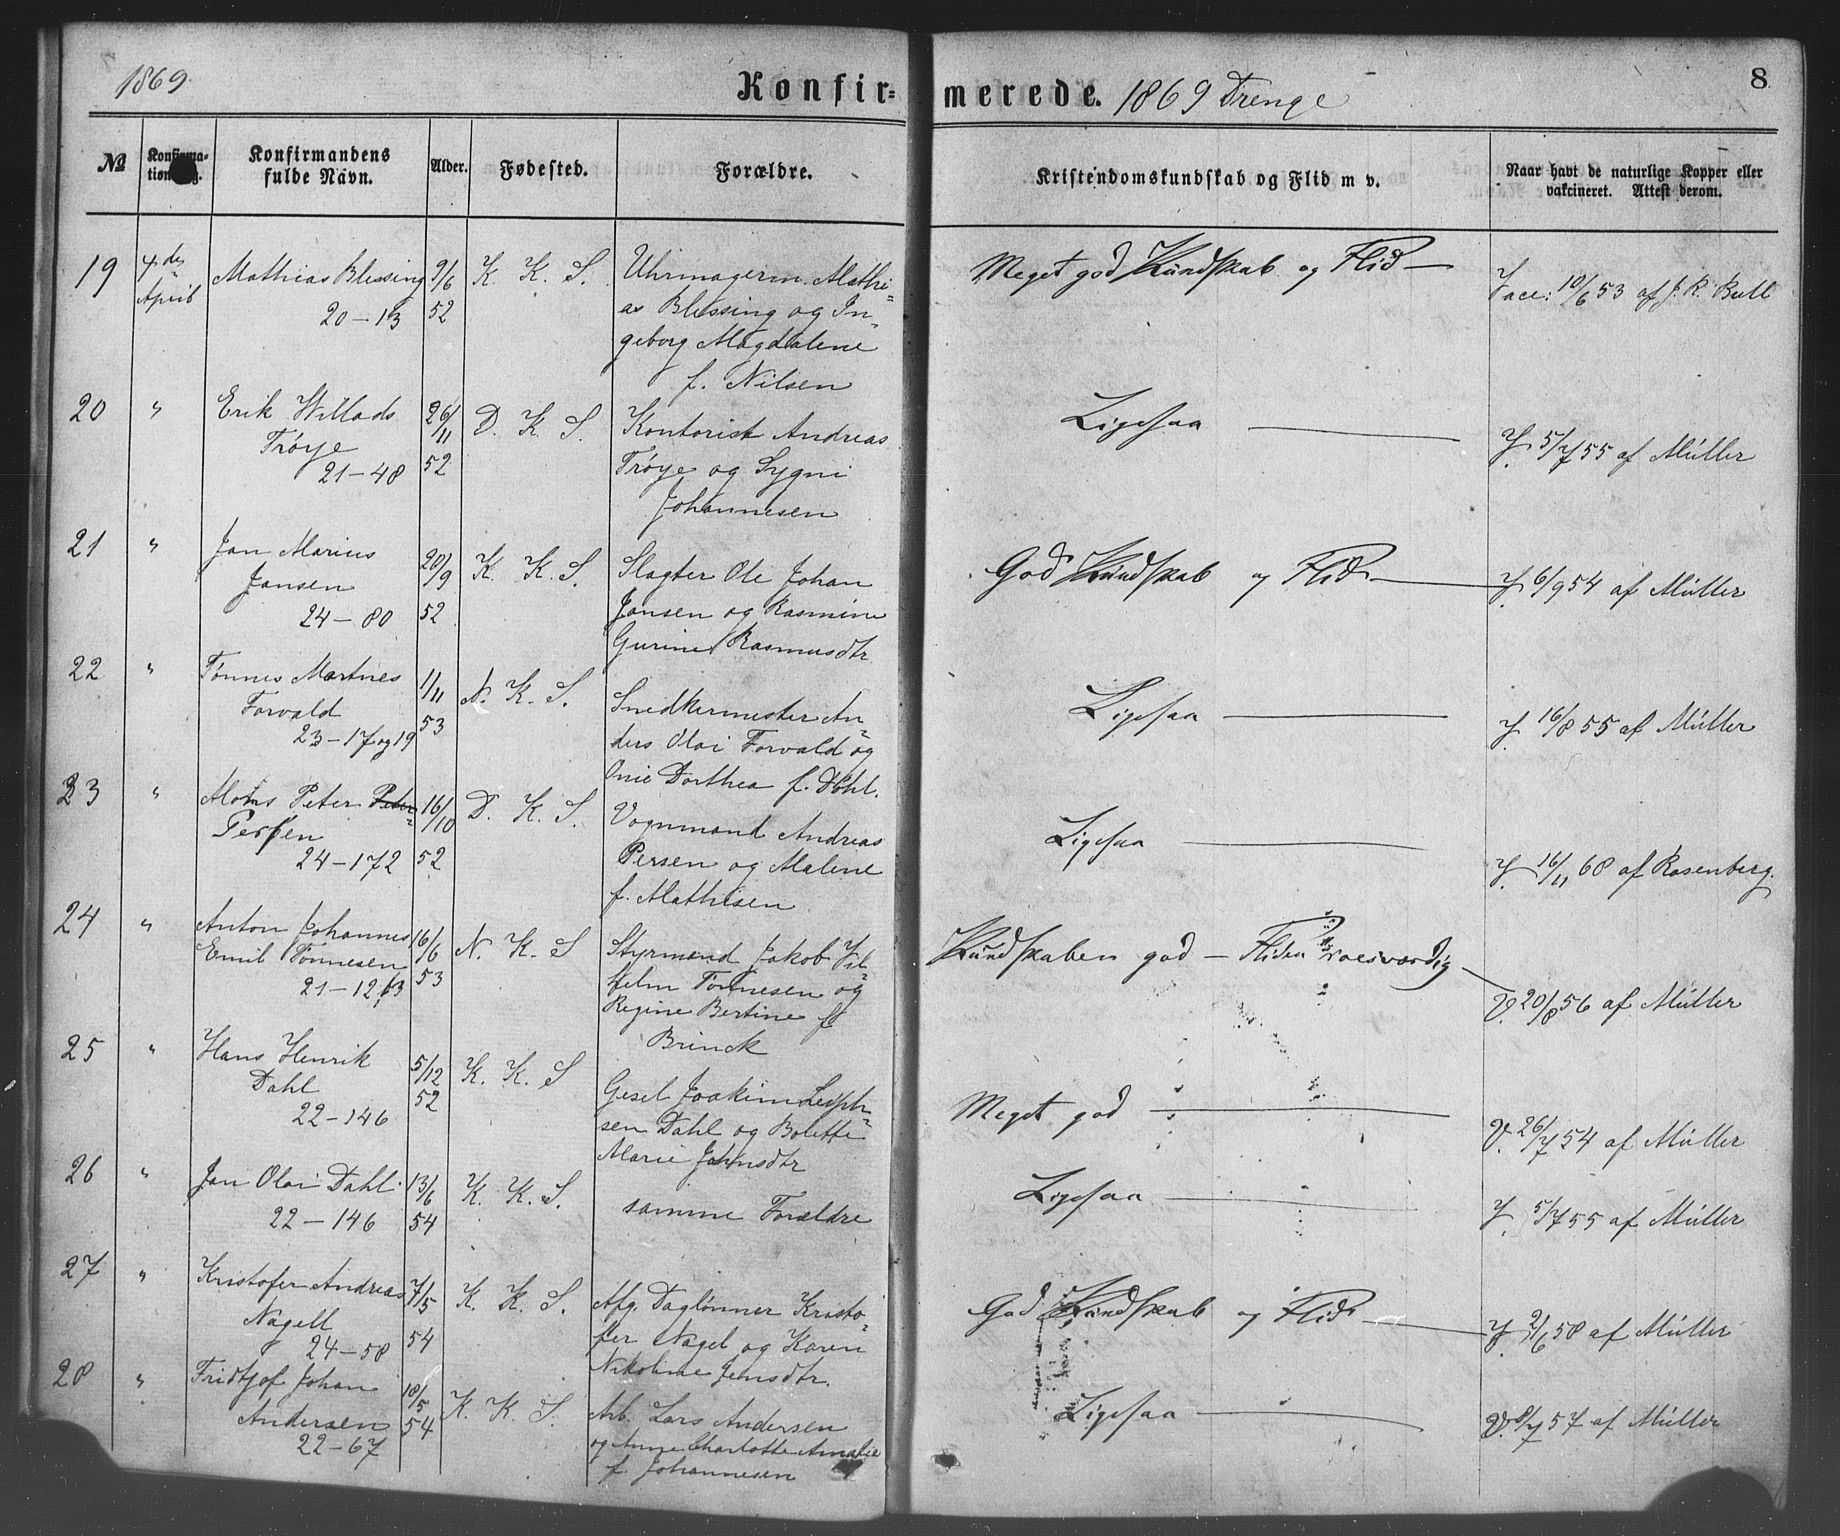 1869
Konfirmerede. 1869 Drenge
8
No | Konfirmationsdag. | Konfirmandens fulde Navn. | Alder. | Fødested. | Forældre. | Kristendomskundskab og Flid m v. | Naar havt de naturlige Kopper eller vakcineret. Attest derom.
19 4de April Mathias Blessing 9/6 K. K. S. Uhrmagerm. Mathi= Meget god Kundskab og Flid — Vacc: 10/6 53 af J. R. Bull
20-13 52 as Blessing og In=
geborg Magdalene
f. Nilsen
20 " Erik Willads 26/11 D. K. S. Kontorist Andreas Ligesaa — V. 5/7 55 af Müller
Trøye 52 Trøye og Sygni
21-48 Johannesen
21 " Jan Marius 20/9 K. K. S. Slagter Ole Johan God Kundskab og Flid — V. 6/9 54 af Müller
Jansen 52 Jansen og Rasmine
24-80 Gurine Rasmusdtr
22 " Tønnes Martnes 1/11 N. K. S. Snedkermester An= Ligesaa — V. 16/8 55 af Müller
Forvald 53 ders Olai Forvald og
23-17 og 19 Dorthea f. Dahl.
23 " Peter Peter= 16/10 D. K. S. Vognmand Andreas Ligesaa — V. 16/11 68 af Rosenberg.
Persen 52 Persen og Malene
24-172 f. Mathisen
24 " Anton Johannes 16/6 N. K. S Styrmand Jakob Vil= Kundskaben god — Fliden Prisværdig — V. 20/8 56 af Müller
Emil Tønnesen 53 helm Tønnesen og
21-12 Regine Bertine f
Brinck
25 " Hans Henrik 5/12 K. K. S Gesel Joakim Meget god — V. 26/7 54 af Müller
Dahl 52 sen Dahl og Bolette
22-146 Marie Jahnsdtr
26 " Jan Olai Dahl 13/6 K. K. S. samme Forældre Ligesaa — V. 5/7 55 af Müller
22-146 54
27 " Kristofer Andreas 7/5 K. K. S. Afg. Daglønner Kristo= God Kundskab og Flid — V. 2/6 58 af Müller
Nagell 54 fer Nagel og Karen
24-58 Nikoline Jensdtr.
28 " Fridtjof Johan 18/5 K. K. S. Arb. Lars Andersen Ligesaa — V. 8/7 57 af Müller
Andersen 54 og Anne Charlotte Amalie
22-67 f. Johannesen